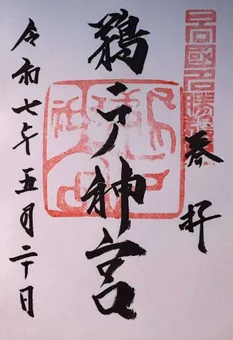 日向國名勝
奉拝
鵜戸神宮
令和七年五月二十日